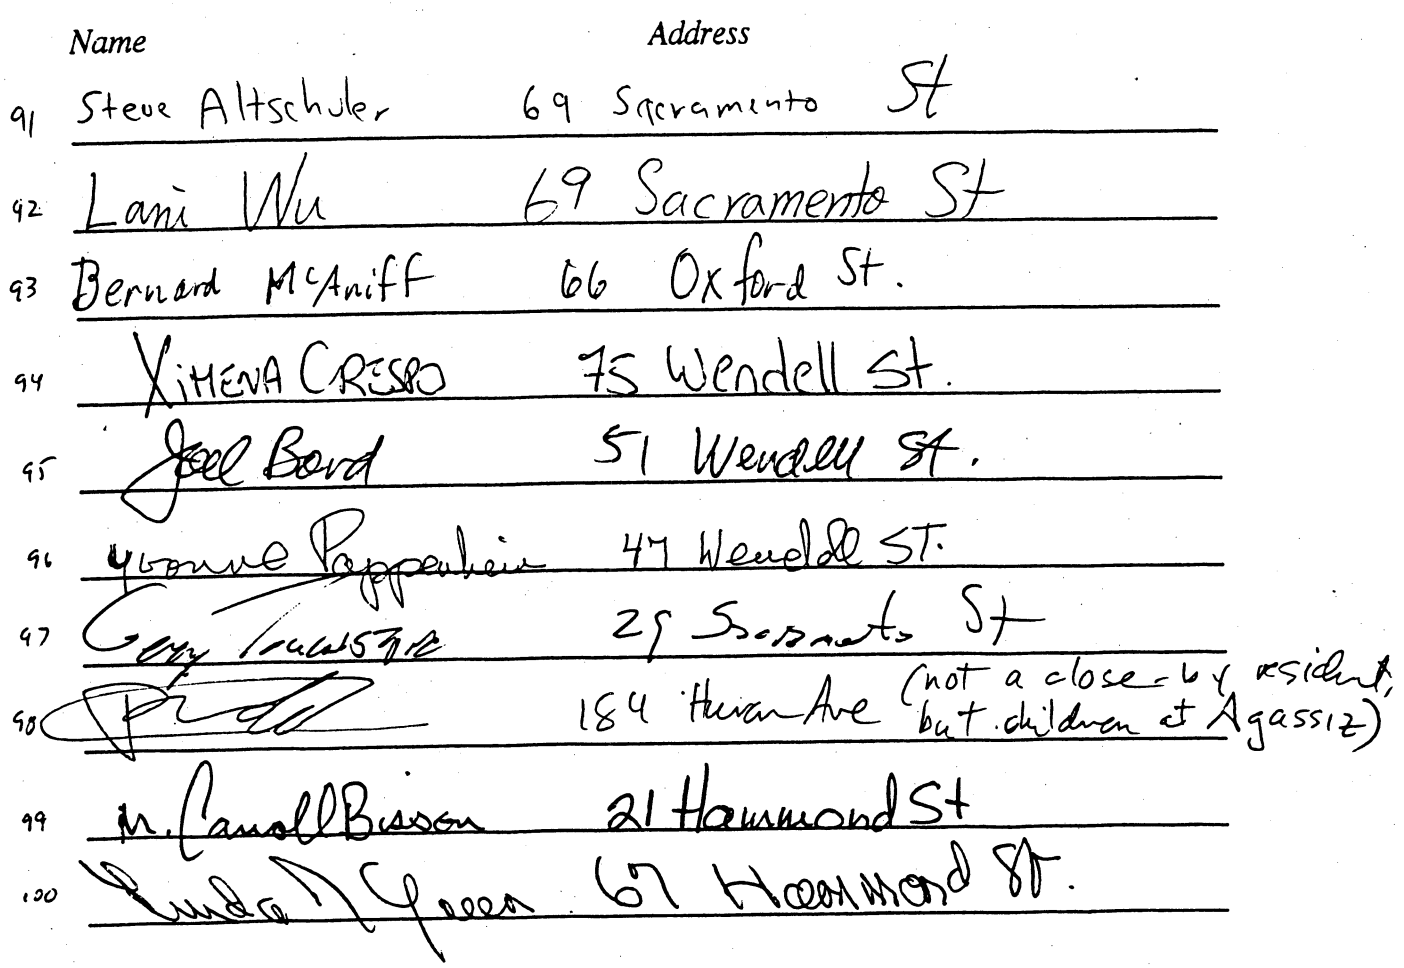 Name Address
91 Steve Altschuler 69 Sacramento St
92 Lani Wu 69 Sacramento St
93 Bernard McAniff 66 Oxford St.
94 XIMENA CRESPO 75 Wendell St.
95 Joel Bard 51 Wendell St.
96 Yvonne Pappenheim 47 Wendell ST.
97 29 Sacramento St
98 184 Huron Ave (not a close-by resident,
but children at Agassiz)
99 M. Carroll Bisson 21 Hammond St
100 Linda J Green 67 Hammond St.